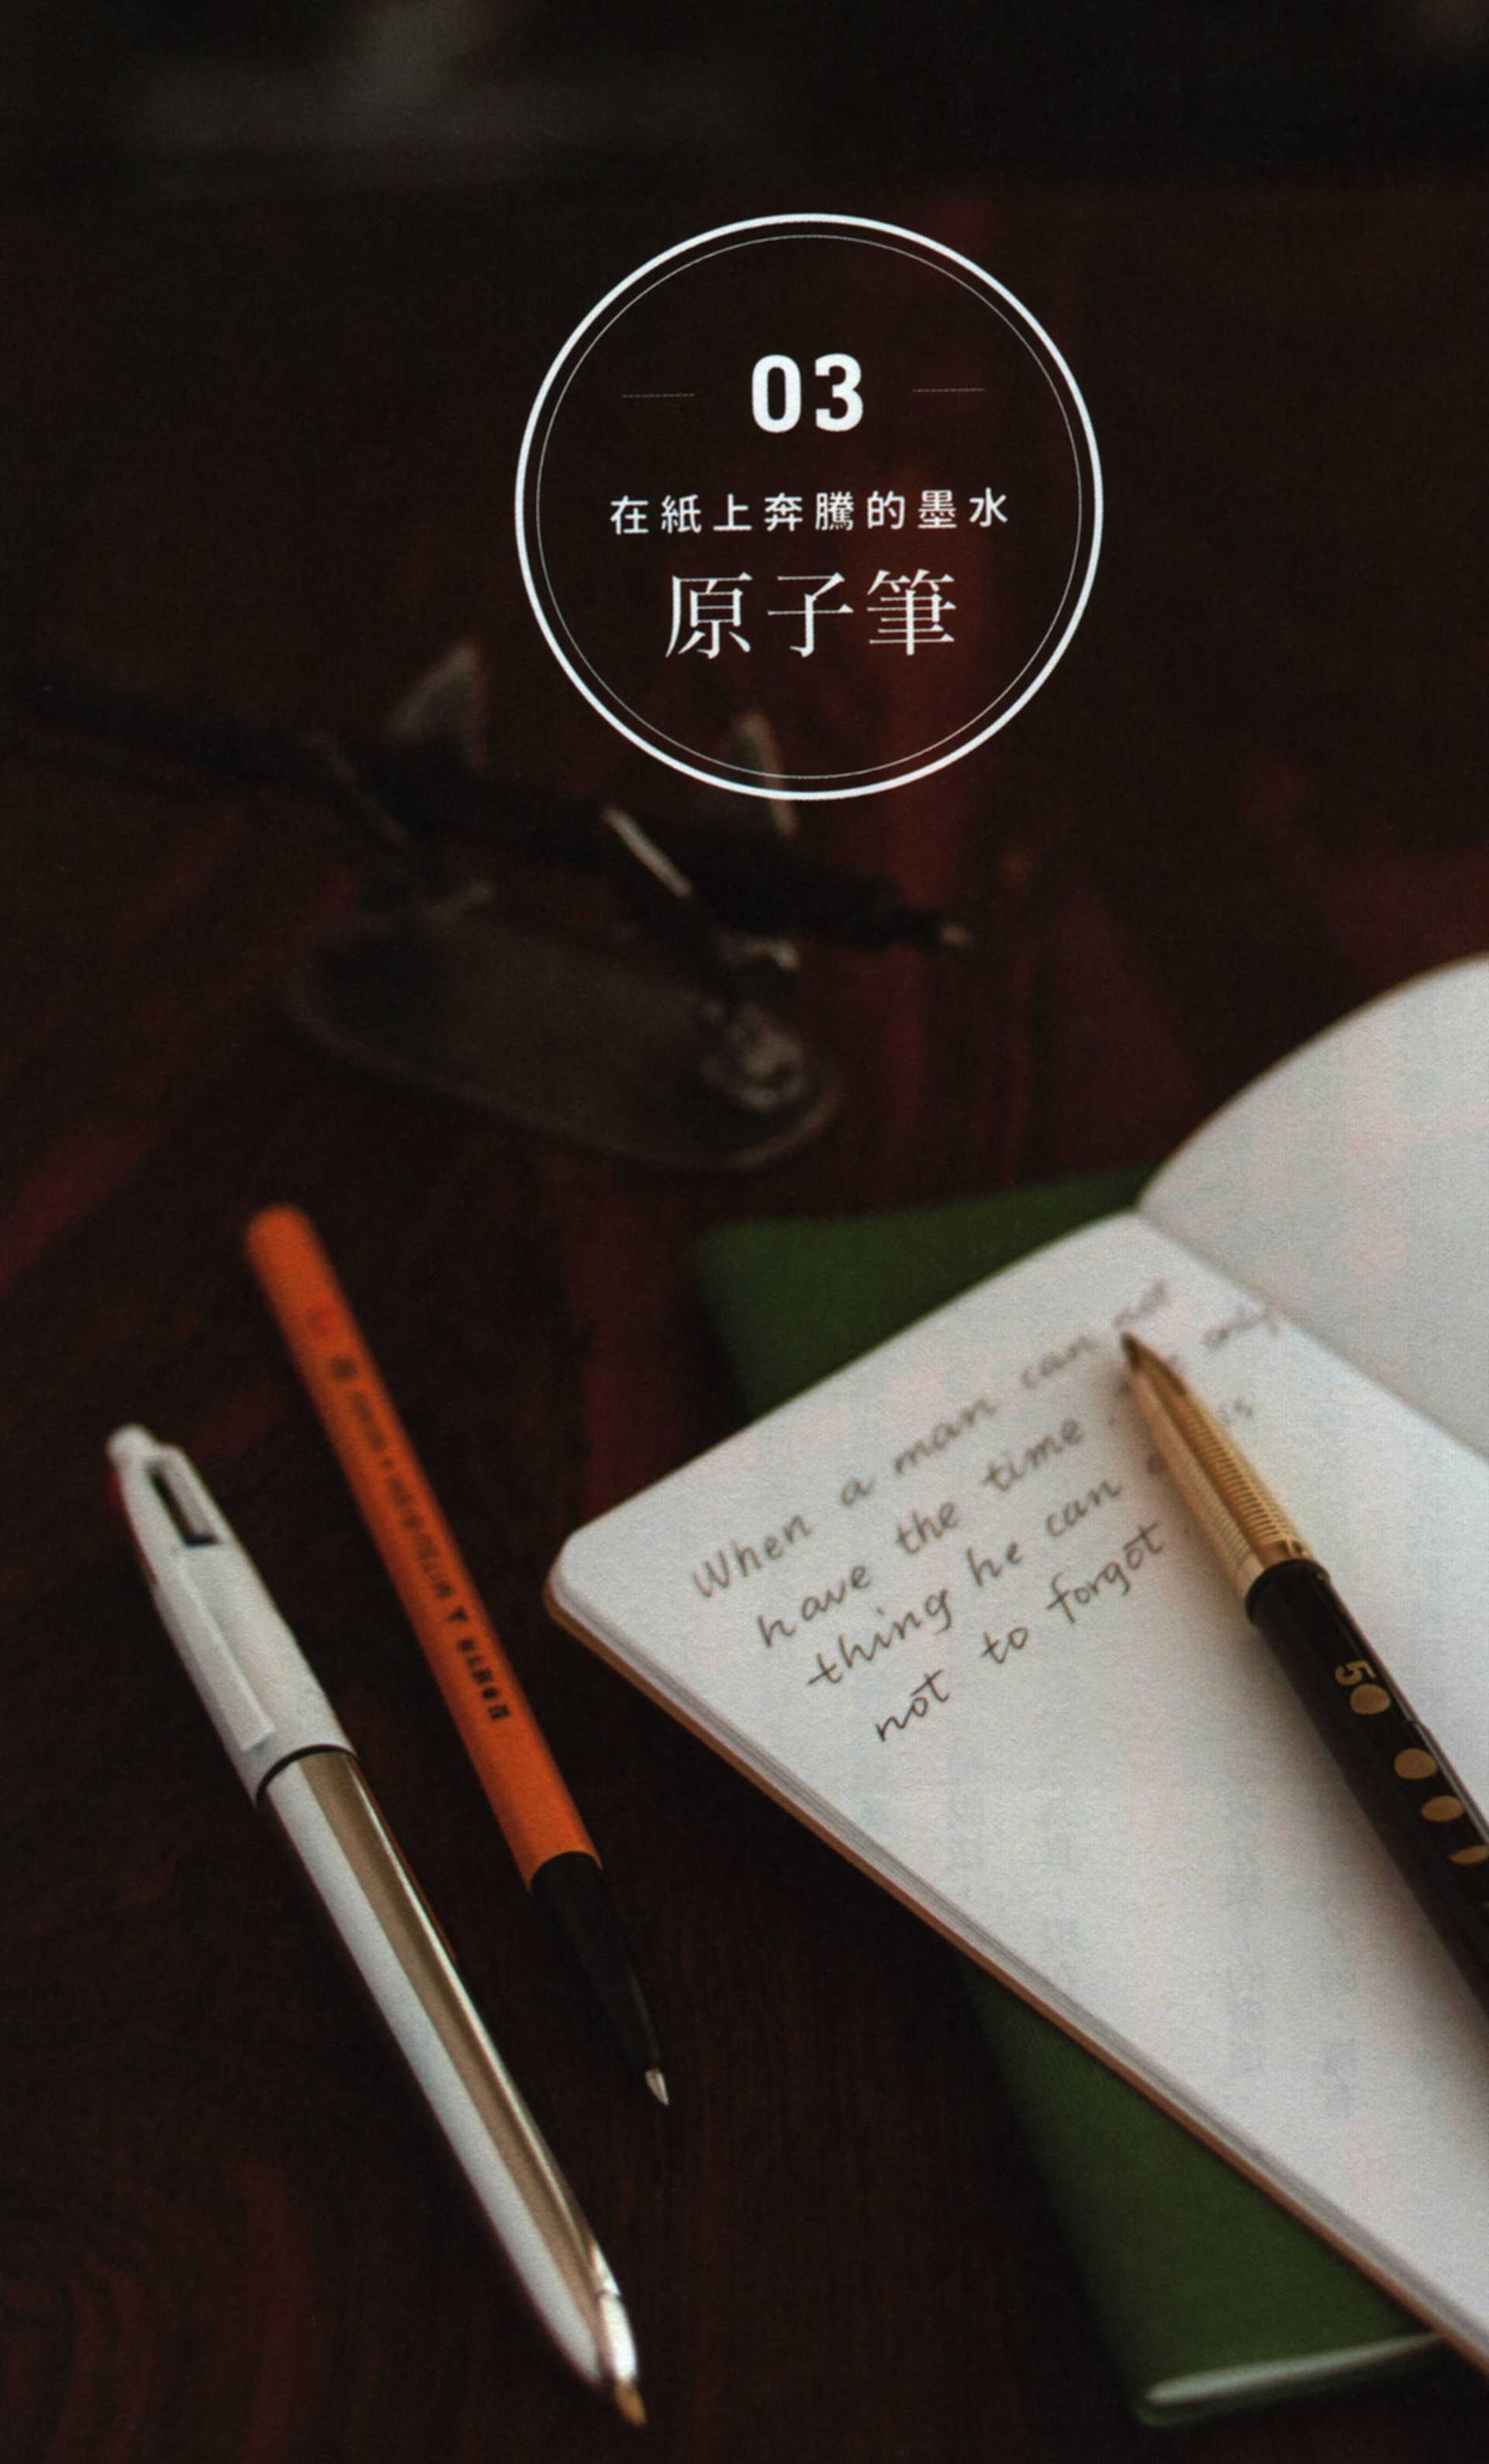 03
在紙上奔騰的墨水
原子筆
When a man can not
have the time only
thing he can is
not to forgot
50